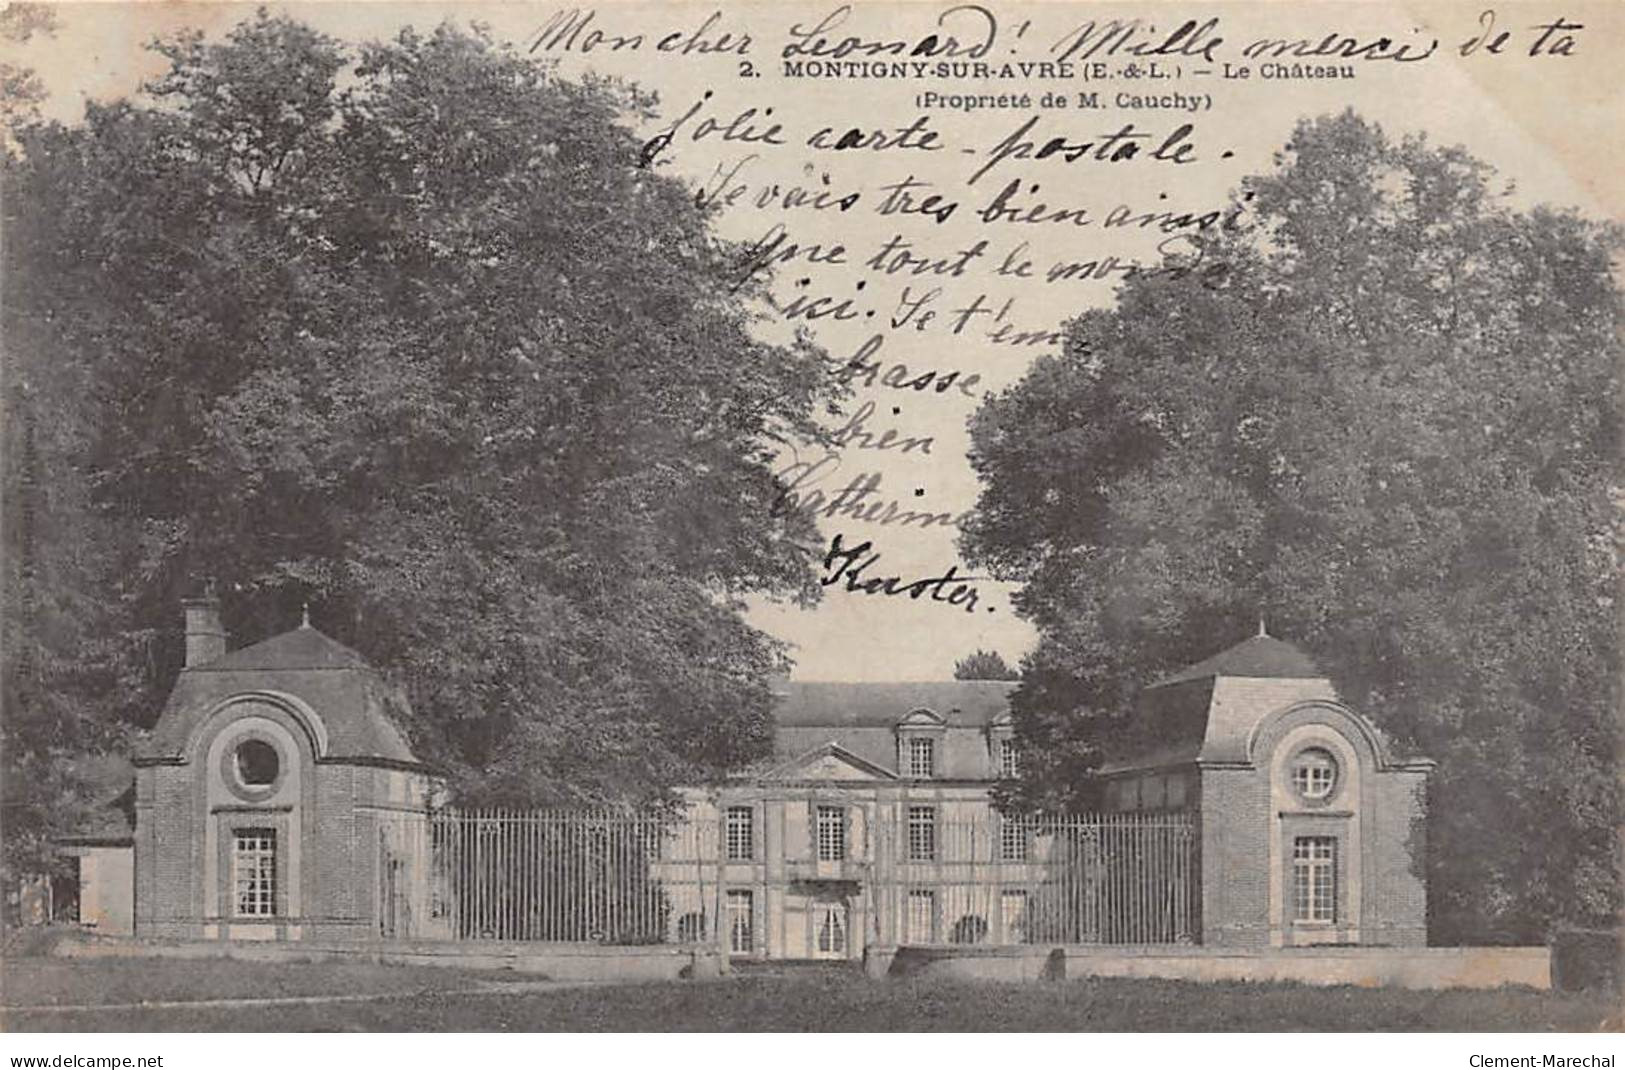 Mon cher Leonard! Mille merci de ta
2. MONTIGNY-SUR-AVRE (E.-&-L.) — Le Château
(Propriété de M. Cauchy)
jolie carte-postale.
Je vais tres bien ainsi
que tout le monde
ici. Je t'em
brasse
bien
Catherine
Kuster.
www.delcampe.net
Clement-Marechal